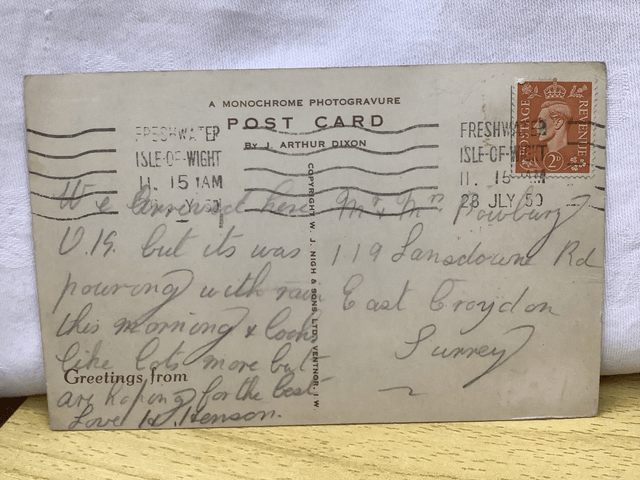 A MONOCHROME PHOTOGRAVURE
POST CARD
By J. ARTHUR DIXON
FRESHWATER
ISLE-OF-WIGHT
11. 15 AM
FRESHWATER
ISLE-OF-WIGHT
11. 15 AM
28 JLY 50
POSTAGE
REVENUE
2D
COPYRIGHT W. J. NIGH & SONS LTD., VENTNOR, I.W.
We arrived here
O.K. but its was
pouring with rain
this morning & looks
like lots more but
Greetings from
are hoping for the best
Love H. Henson.
Mr & Mrs Powbury
119 Lansdowne Rd
East Croydon
Surrey